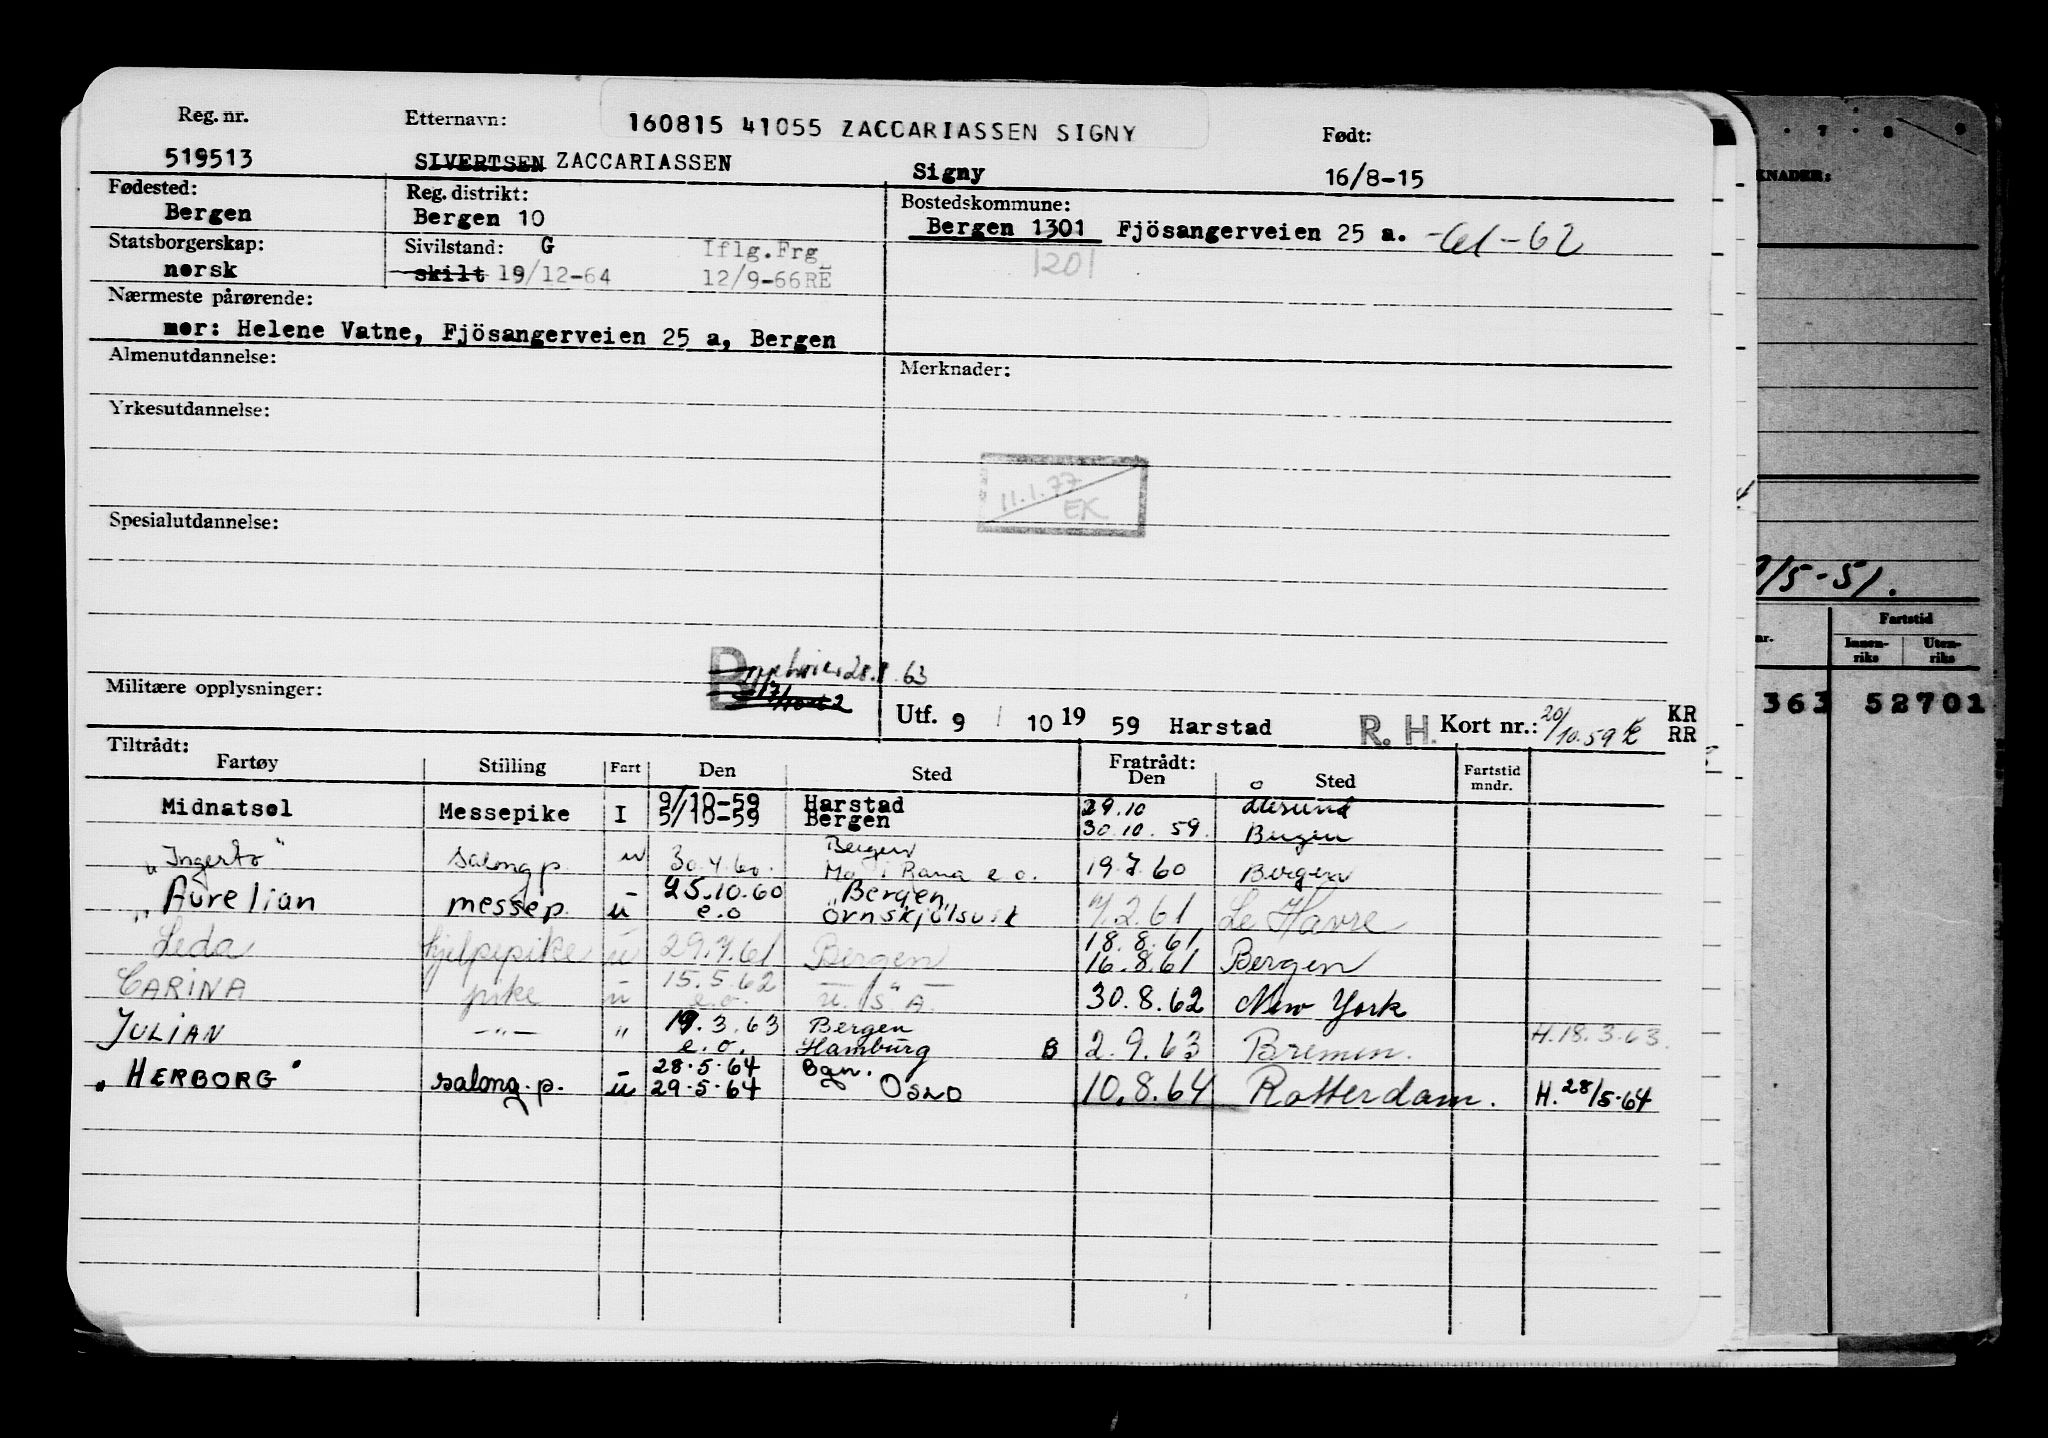 Reg. nr. Etternavn: 160815 41055 ZACCARIASSEN SIGNY Født:
519513 SIVERTSEN ZACCARIASSEN Signy 16/8-15
Fødested: Reg. distrikt: Bostedskommune:
Bergen Bergen 10 Bergen 1301 Fjösangerveien 25 a. -61-62
Statsborgerskap: Sivilstand: G Iflg.Frg 1201
norsk skilt 19/12-64 12/9-66RE
Nærmeste pårørende:
mor: Helene Vatne, Fjösangerveien 25 a, Bergen
Almenutdannelse: Merknader:
Yrkesutdannelse:
11.1.77
EK
Spesialutdannelse:
B 28.8.63
Militære opplysninger:
Utf. 9 / 10 19 59 Harstad R. H. Kort nr.: 20/10.59 KR
RR
Tiltrådt: Fratrådt:
Fartøy Stilling Fart Den Sted Den Sted Fartstid mndr.
Midnatsol Messepike I 9/10-59 Harstad 29.10 Ålesund
5/10-59 Bergen 30.10.59. Bergen
"Ingerto" salongp. u 30.4.60. Bergen
Mo i Rana e.o. 19.7.60 Bergen
"Aurelian messep. u 25.10.60 "Bergen"
e.o Örnskjölsvik 7.2.61 Le Havre
Leda hjelpepike u 29.7.61 Bergen 18.8.61
16.8.61 Bergen
CARINA pike u 15.5.62
e.o. U.S.A. 30.8.62 New York
JULIAN —"— " 19.3.63 Bergen
e.o. Hamburg B 2.9.63 Bremen. H.18.3.63.
"HERBORG" salong.p. u 28.5.64 Bgn.
29.5.64 OSLO 10.8.64 Rotterdam. H.28/5-64
7 8 9
KNADER:
/5-51.
Fartstid
nr. Innenriks Utenriks
363 52701